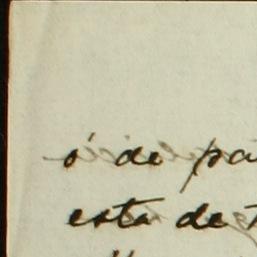 ó de pa
esta de